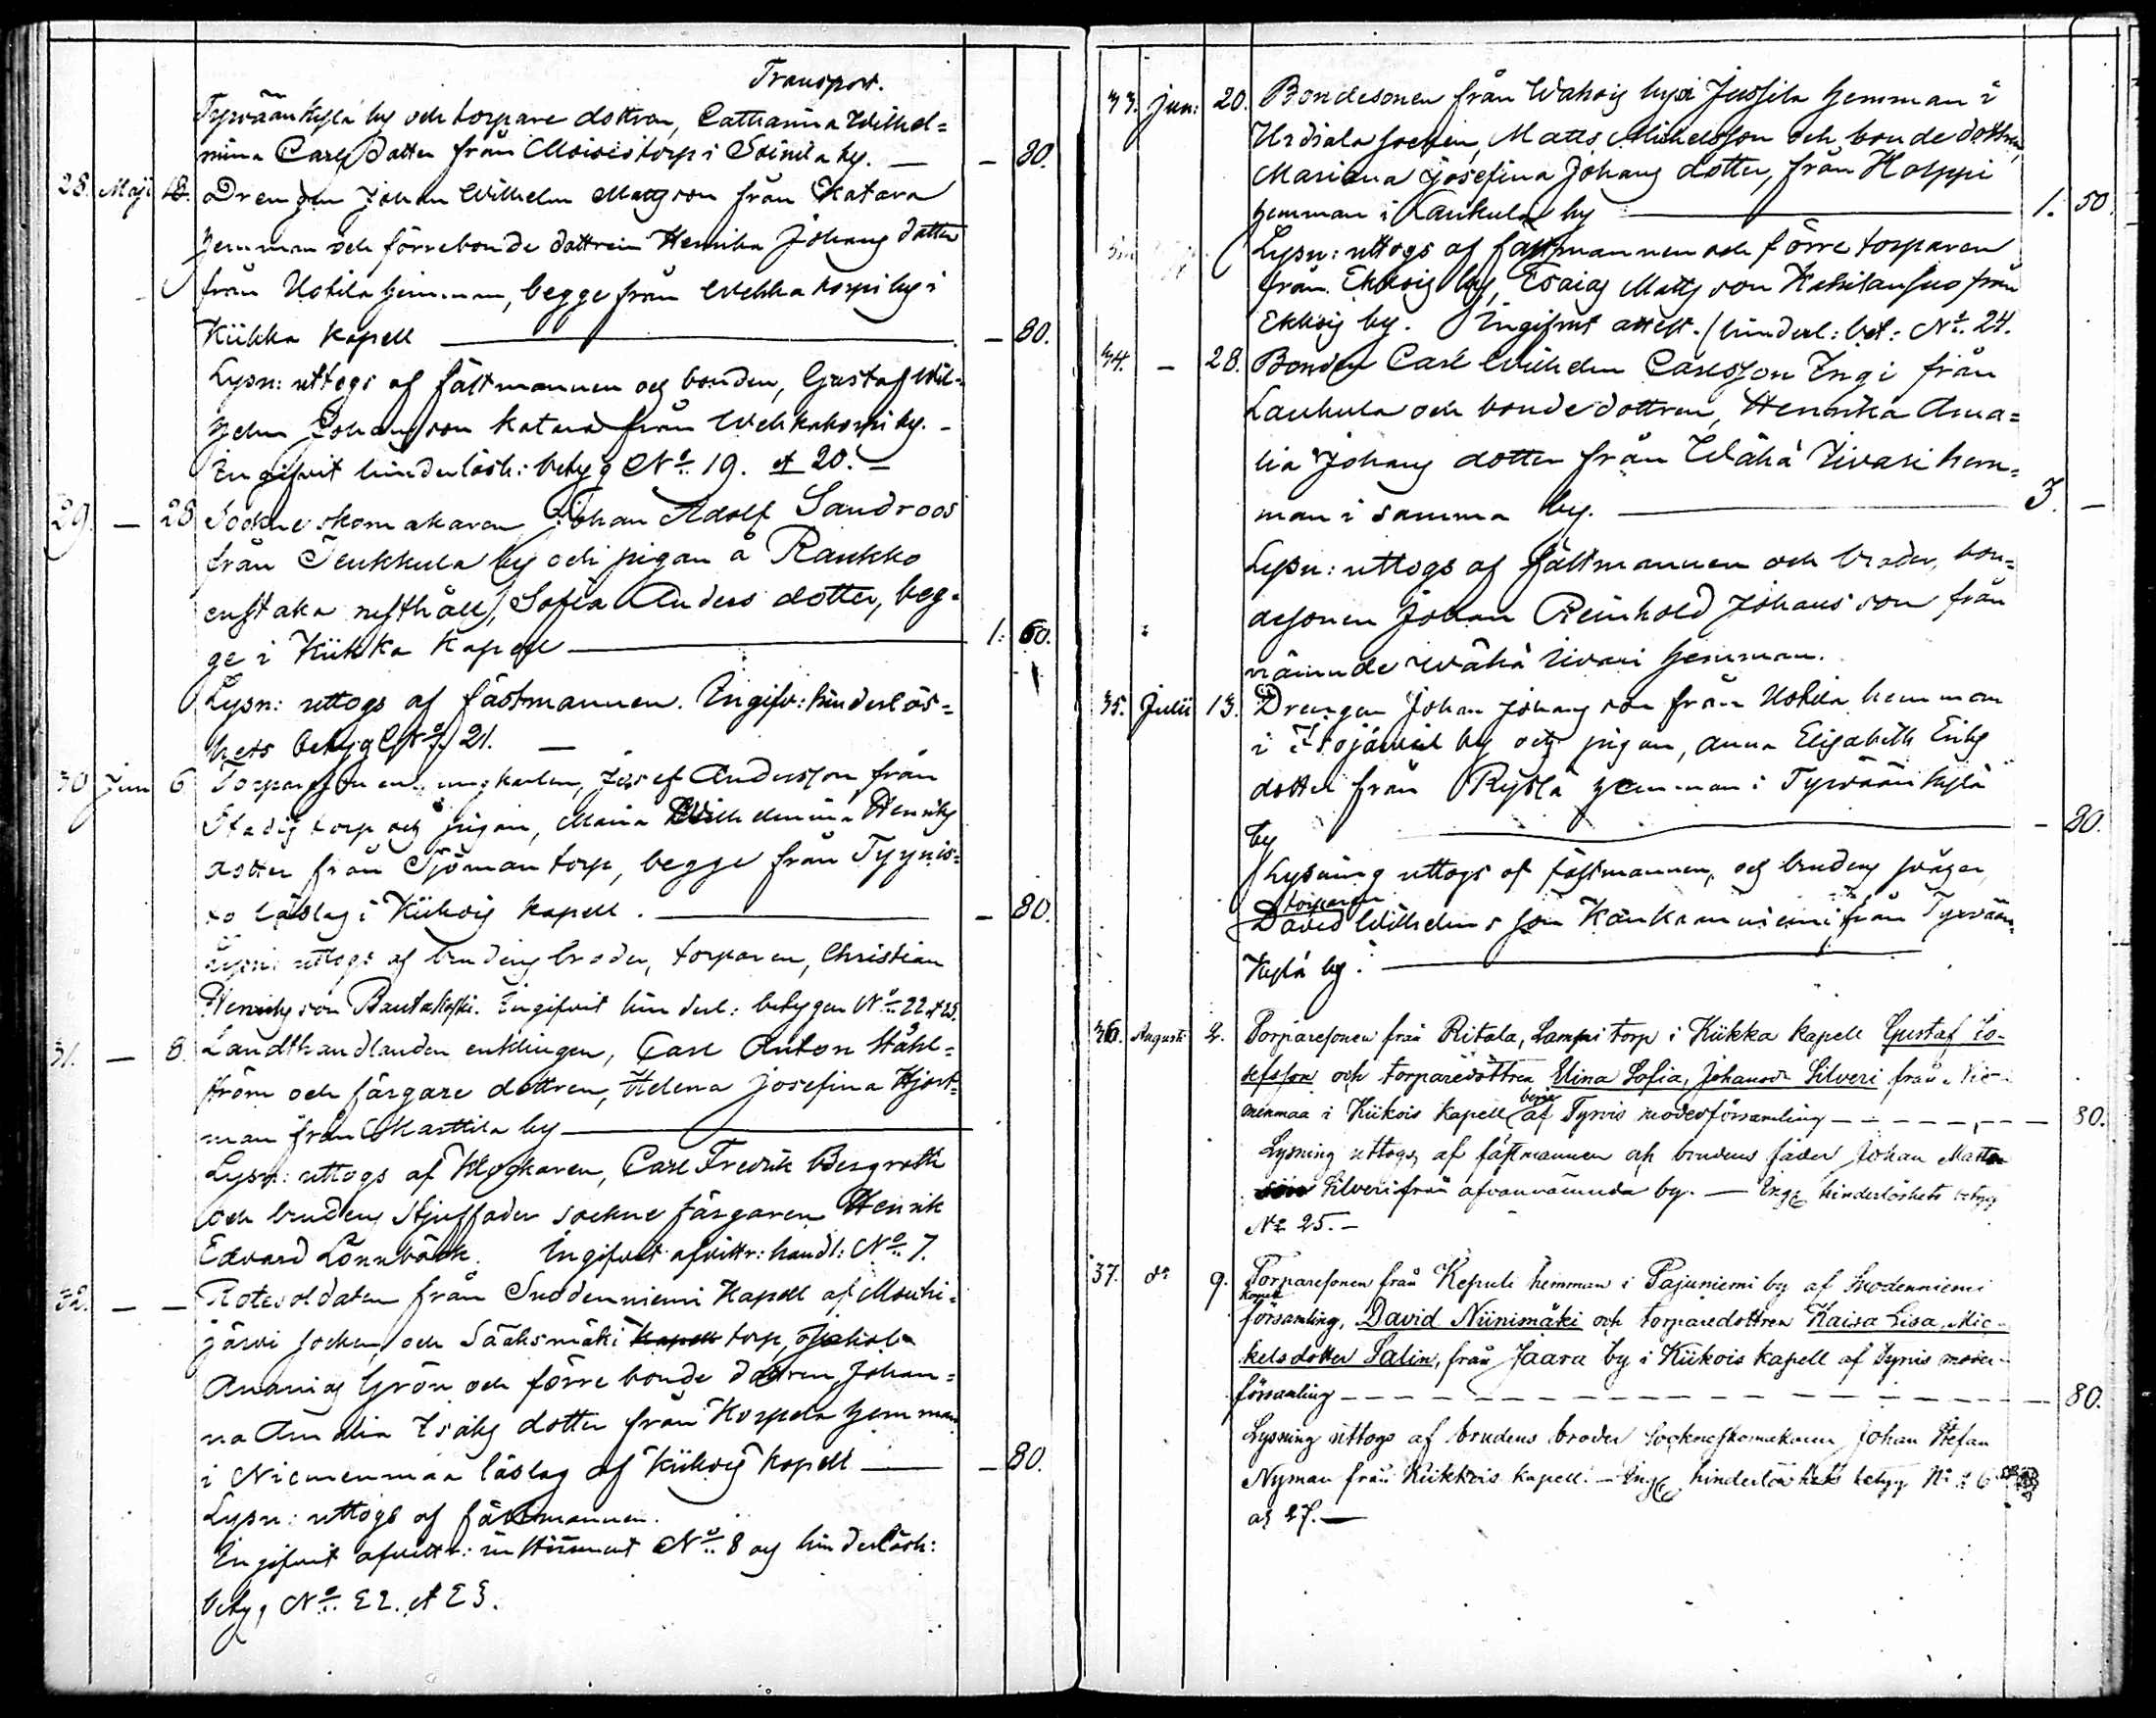 Transport.
Tyrväänkylä by och torpare dottren, Catharina Wilhel=
mina Carlsdotter från Moisis torp i Soinila by. — — 80.
28. Maji 18. Drengen Johan Wilhelm Mattsson från Katara
hemman och förre bonde dottren Henrika Johans dotter
från Uotila hemman, begge från Wehkakorpi by i
Kiikka Kapell — 80.
Lysn: uttogs af fästmannen och bonden, Gustaf Wil=
helm Johansson Katara från Wehkakorpi by. –
Ingifvit hinderlösh: betyg No. 19. et 20. –
29. — 28 Sockne skomakaren Johan Adolf Sandroos
från Teukkula by och pigan å Raukko
enstaka rusthåll, Sofia Anders dotter, beg=
ge i Kiikka Kapell — 1. 60.
Lysn: uttogs af fästmannen. Ingifv: hinderlös=
hets betyg No. 21. —
30 Juni 6 Torparesonen, ungkarlen, Josef Andersson från
Stadig torp och pigan, Maria Wilhelmina Henriks
dotter från Sjöman torp, begge från Tyynis=
to läslag i Kiikois kapell. — 80.
Lysn: uttogs af brudens broder, torparen, Christian
Henriksson Rautakoski. Ingifvit hinderl: betygen No. 22 et 23.
31. — 8. Landthandlanden enklingen, Carl Anton Ståhl=
ström och färgare dottren, Helena Josefina Hjort=
man från Marttila by —
Lysn: uttogs af Klockaren, Carl Fredrik Bergroth
och brudens styffader sockne färgaren Henrik
Edvard Lönnbäck. Ingifvit afvittr: handl: No. 7.
32. — — Rotesoldaten från Suodenniemi Kapell af Mouhi=
järvi socken, och Sääksmäki Kapell torp,
Ananias Grön och förre bonde dottren Johan=
na Amalia Isaks dotter från Korpela hemman
i Niemenmaa läslag af Kiikois Kapell — — 80.
Lysn: uttogs af fästmannen.
Ingifvit afvittr: instrument No. 8 och hinderlösh:
betyg No. 22. et 23.
33. Jun: 20. Bondesonen från Wahois by Jussila hemman i
Urdiala socken, Matts Michelsson och bonde dottren,
Mariana Josefina Johans dotter, från Hoppi
hemman i Laukula by — 1. 50
Lysn: uttogs af fästmannen och förre torparen
från Ekkois by, Esaias Mattsson Kakilansuo från
Ekkois by. Ingifvit attest. / hinderl: bet: No. 24.
34. — 28. Bonden Carl Wilhelm Carlsson Ingi från
Laukula och bondedottren, Henrika Ama=
lia Johans dotter från Wähä Uivari hem=
man i samma by. — 3. —
Lysn: uttogs af fästmannen och broder, bon=
desonen Johan Reinhold Johansson från
nämnde Wähä Uivari hemman.
35. Julii 13. Drengen Johan Johansson från Uotila hemman
i by och pigan, Anna Elisabeth Eriks
dotter från Rystä hemman i Tyrväänkylä
by — 80.
Lysning uttogs af fästmannen, och brudens svåger
torparen
David Wilhelmsson Kankaanniemi från Tyrvään
kylä by. —
36. Augusti 2. Torparesonen från Ritala, Lampi torp i Kiikka kapell Gustaf Jo-
sefsson och torparedottren Elina Sofia, Johansdr Silveri från Nie-
menmaa i Kiikois kapell berge af Tyrvis moderförsamling — — — — 80.
Lysning uttogs af fästmannen och brudens fader Johan Matts
son Silveri från ofvannämnda by. — Ing. hinderlöshets betyg
No 25. –
37. do 9. Torparesonen från Kepuli hemman i Pajuniemi by af Suodenniemi
kapell
församling, David Niinimäki och torparedottren Kaisa Lisa, Mic-
kelsdotter Salin, från Jaara by i Kiikois kapell af Tyrvis moder-
församling — — — — 80.
Lysning uttogs af brudens broder Sockneskomakaren Johan Stefan
Nyman från Kiikkois kapell. – Ing. hinderlöshets betyg No 26
och 27. —